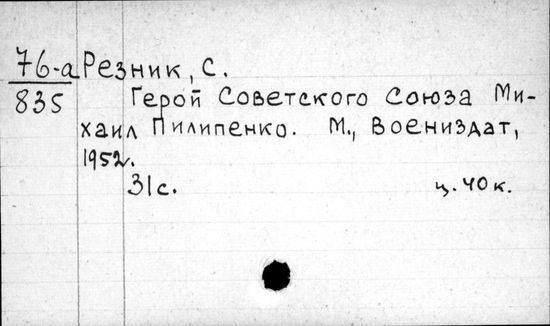 76-а Резник, С.
835 Герой Советского Союза Ми-
хаил Пилипенко. М., Воениздат,
1952.
31с. ц. 40 к.